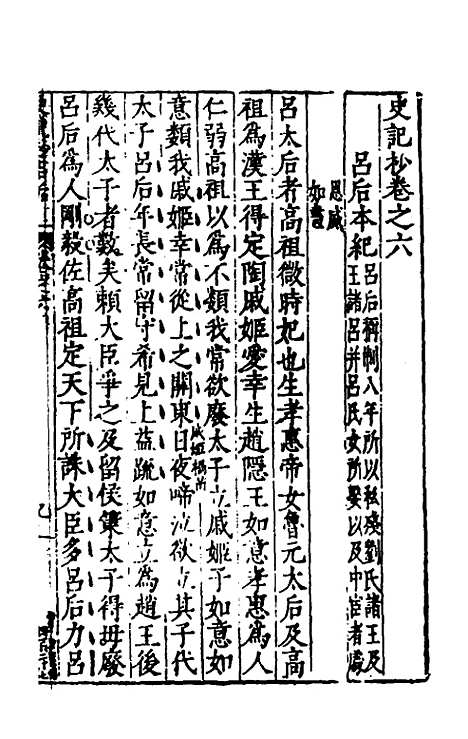 史記抄卷之六
呂后本紀
呂后稱制八年所以殘劉氏諸王及
王諸呂并呂氏女所娶以及中宦者
呂太后者高祖微時妃也生孝惠帝女魯元太后及高
祖爲漢王得定陶戚姬愛幸生趙隱王如意孝惠爲人
仁弱高祖以爲不類我常欲廢太子立戚姬子如意如
意類我戚姬幸常從上之關東日夜啼泣欲立其子代
太子呂后年長常留守希見上益疏如意立爲趙王後
幾代太子者數矣賴大臣爭之及留侯策太子得毋廢
呂后爲人剛毅佐高祖定天下所誅大臣多呂后力呂